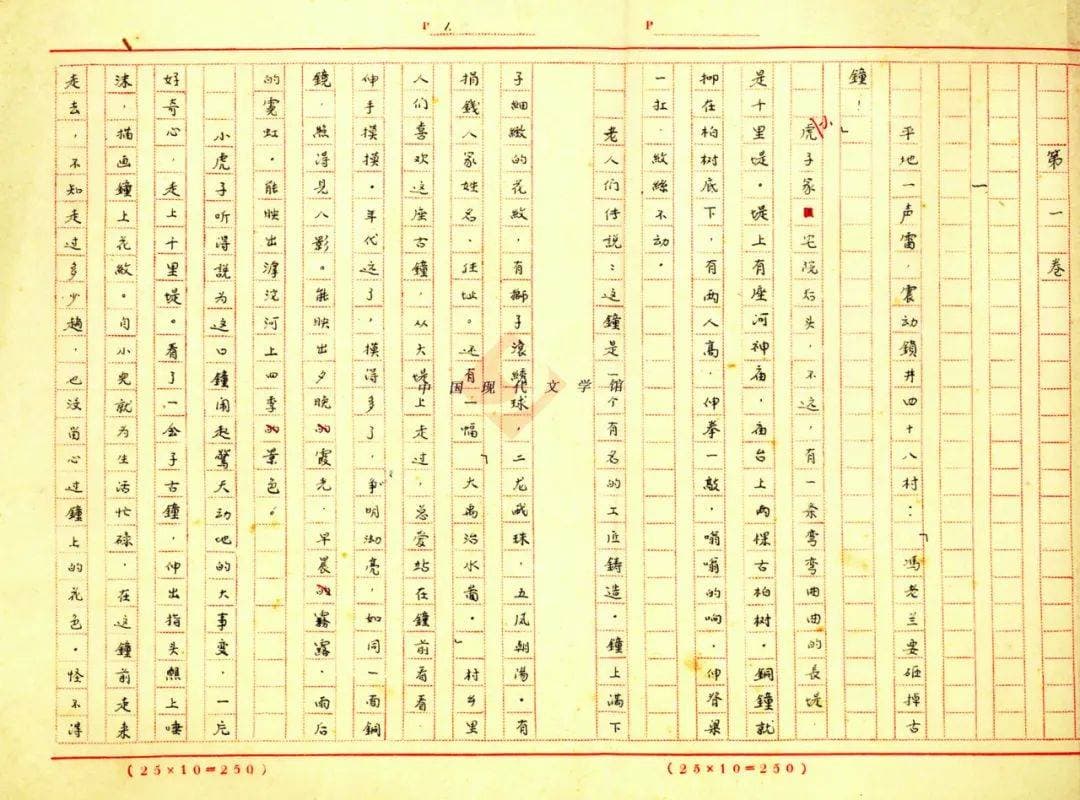 P 1.
P
第一卷
一
平地一声雷，震动鎖井四十八村：「馮老兰要砸掉古
鐘！」
小虎子家宅院后头，不远，有一条弯弯曲曲的長堤，
是十里堤。堤上有座河神庙，庙台上两棵古柏树。銅鐘就
抑在柏树底下，有两人高，伸拳一敲，嗡嗡的响，伸脊梁
一扛，紋絲不动。
老人们传説：这鐘是一个有名的工匠鋳造。鐘上滿下
子細緻的花紋，有獅子滾綉球，二龙戏珠，五凤朝陽。有
捐錢人家姓名，住址。还有一幅「大禹治水啚。」村乡里
人们喜欢这座古鐘，从大堤上走过，总爱站在鐘前看看，
伸手摸摸。年代远了，摸得多了，争明彻亮，如同一面銅
鏡，照得見人影。能映出夕晚的霞光，早晨的霧露，雨后
的霓虹。能映出滹沱河上四季的景色。
小虎子听得説为这口鐘闹起驚天动地的大事变，一片
好奇心，走上十里堤。看了一会子古鐘，伸出指头醮上唾
沫，描画鐘上花紋。自小兒就为生活忙碌，在这鐘前走来
走去，不知走过多少趟，也沒留心过鐘上的花色。怪不得
中国现代文学馆
(25×10=250)
(25×10=250)